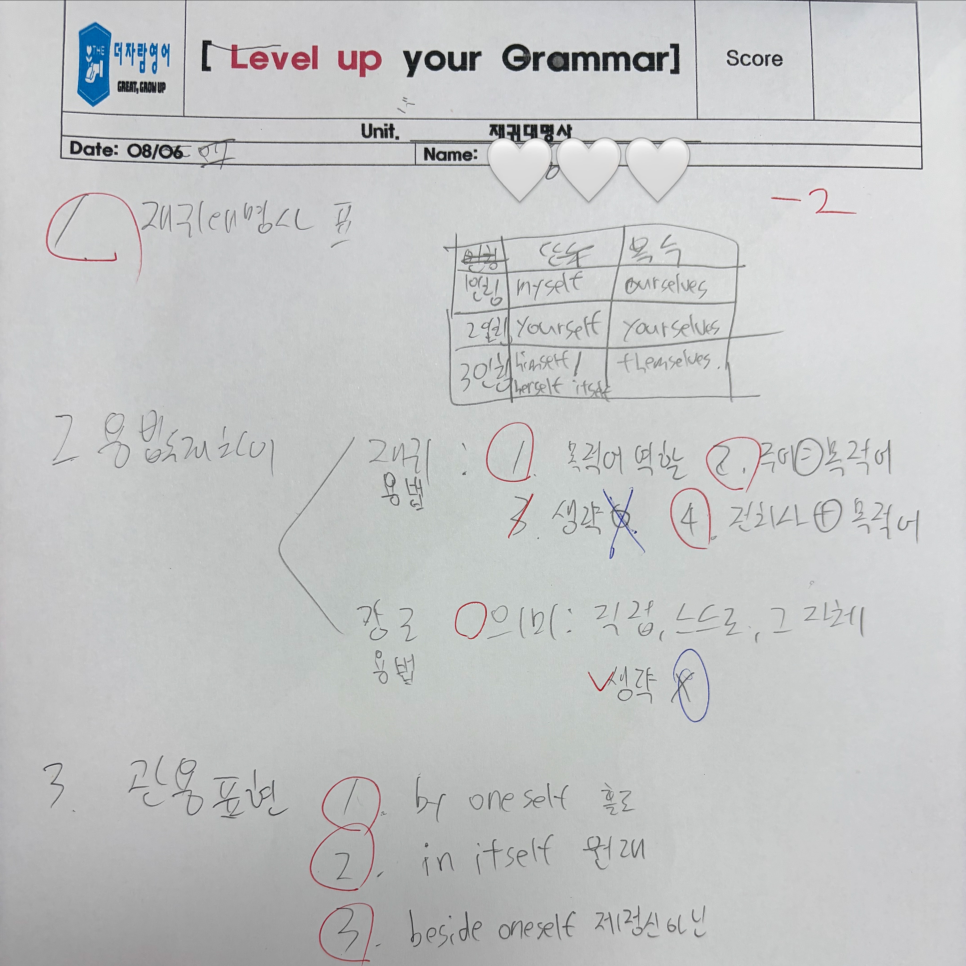 THE
더자람영어
GREAT, GROW UP
[ Level up your Grammar]
Score
Unit. 재귀대명사
Date: 08/06
Name:
-2
1. 재귀대명사 표
인칭 단수 복수
1인칭 myself ourselves
2인칭 yourself yourselves
3인칭 himself/ herself itself themselves.
2 용법
재귀 용법 : 1. 목적어 역할 2. 주어=목적어
3. 생략 4. 전치사 + 목적어
강조 용법 의미: 직접, 스스로, 그 자체
생략 X
3. 관용표현 1. by oneself 홀로
2. in itself 원래
3. beside oneself 제정신아닌